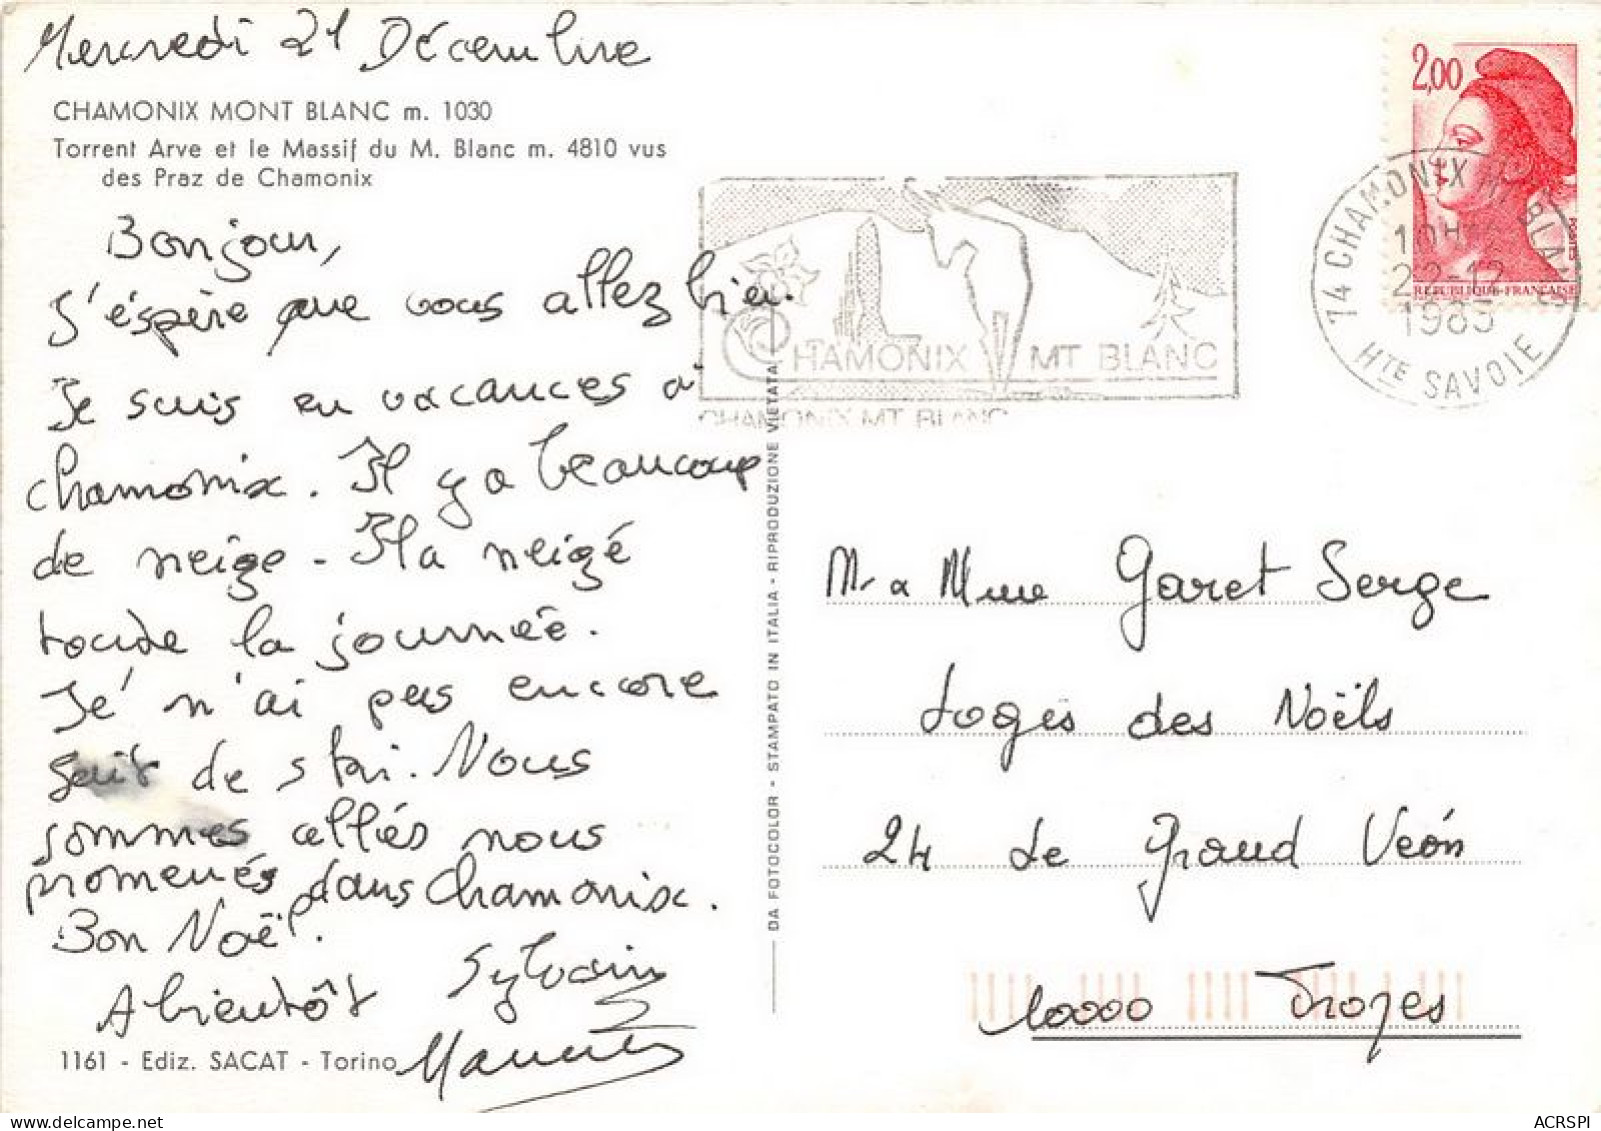 Mercredi 21 Décembre
CHAMONIX MONT BLANC m. 1030
Torrent Arve et le Massif du M. Blanc m. 4810 vus
des Praz de Chamonix
Bonjour,
J'éspère que vous allez bien.
Je suis en vacances à
chamonix. Il y a beaucoup
de neige - Il a neigé
toute la journée.
Je n'ai pas encore
fait de ski. Nous
sommes allés nous
promenés dans Chamonix.
Bon Noël.
A bientôt Sylvain
1161 - Ediz. SACAT - Torino
DA FOTOCOLOR - STAMPATO IN ITALIA - RIPRODUZIONE VIETATA
CHAMONIX MT BLANC
CHAMONIX MT BLANC
2,00
RÉPUBLIQUE-FRANÇAISE
74 CHAMONIX MT BLANC
10H
22-12
1983
HTE SAVOIE
Mr a Mme Garet Serge
Loges des Noëls
24 Le Grand Véon
10000 Troyes
ACRSPI